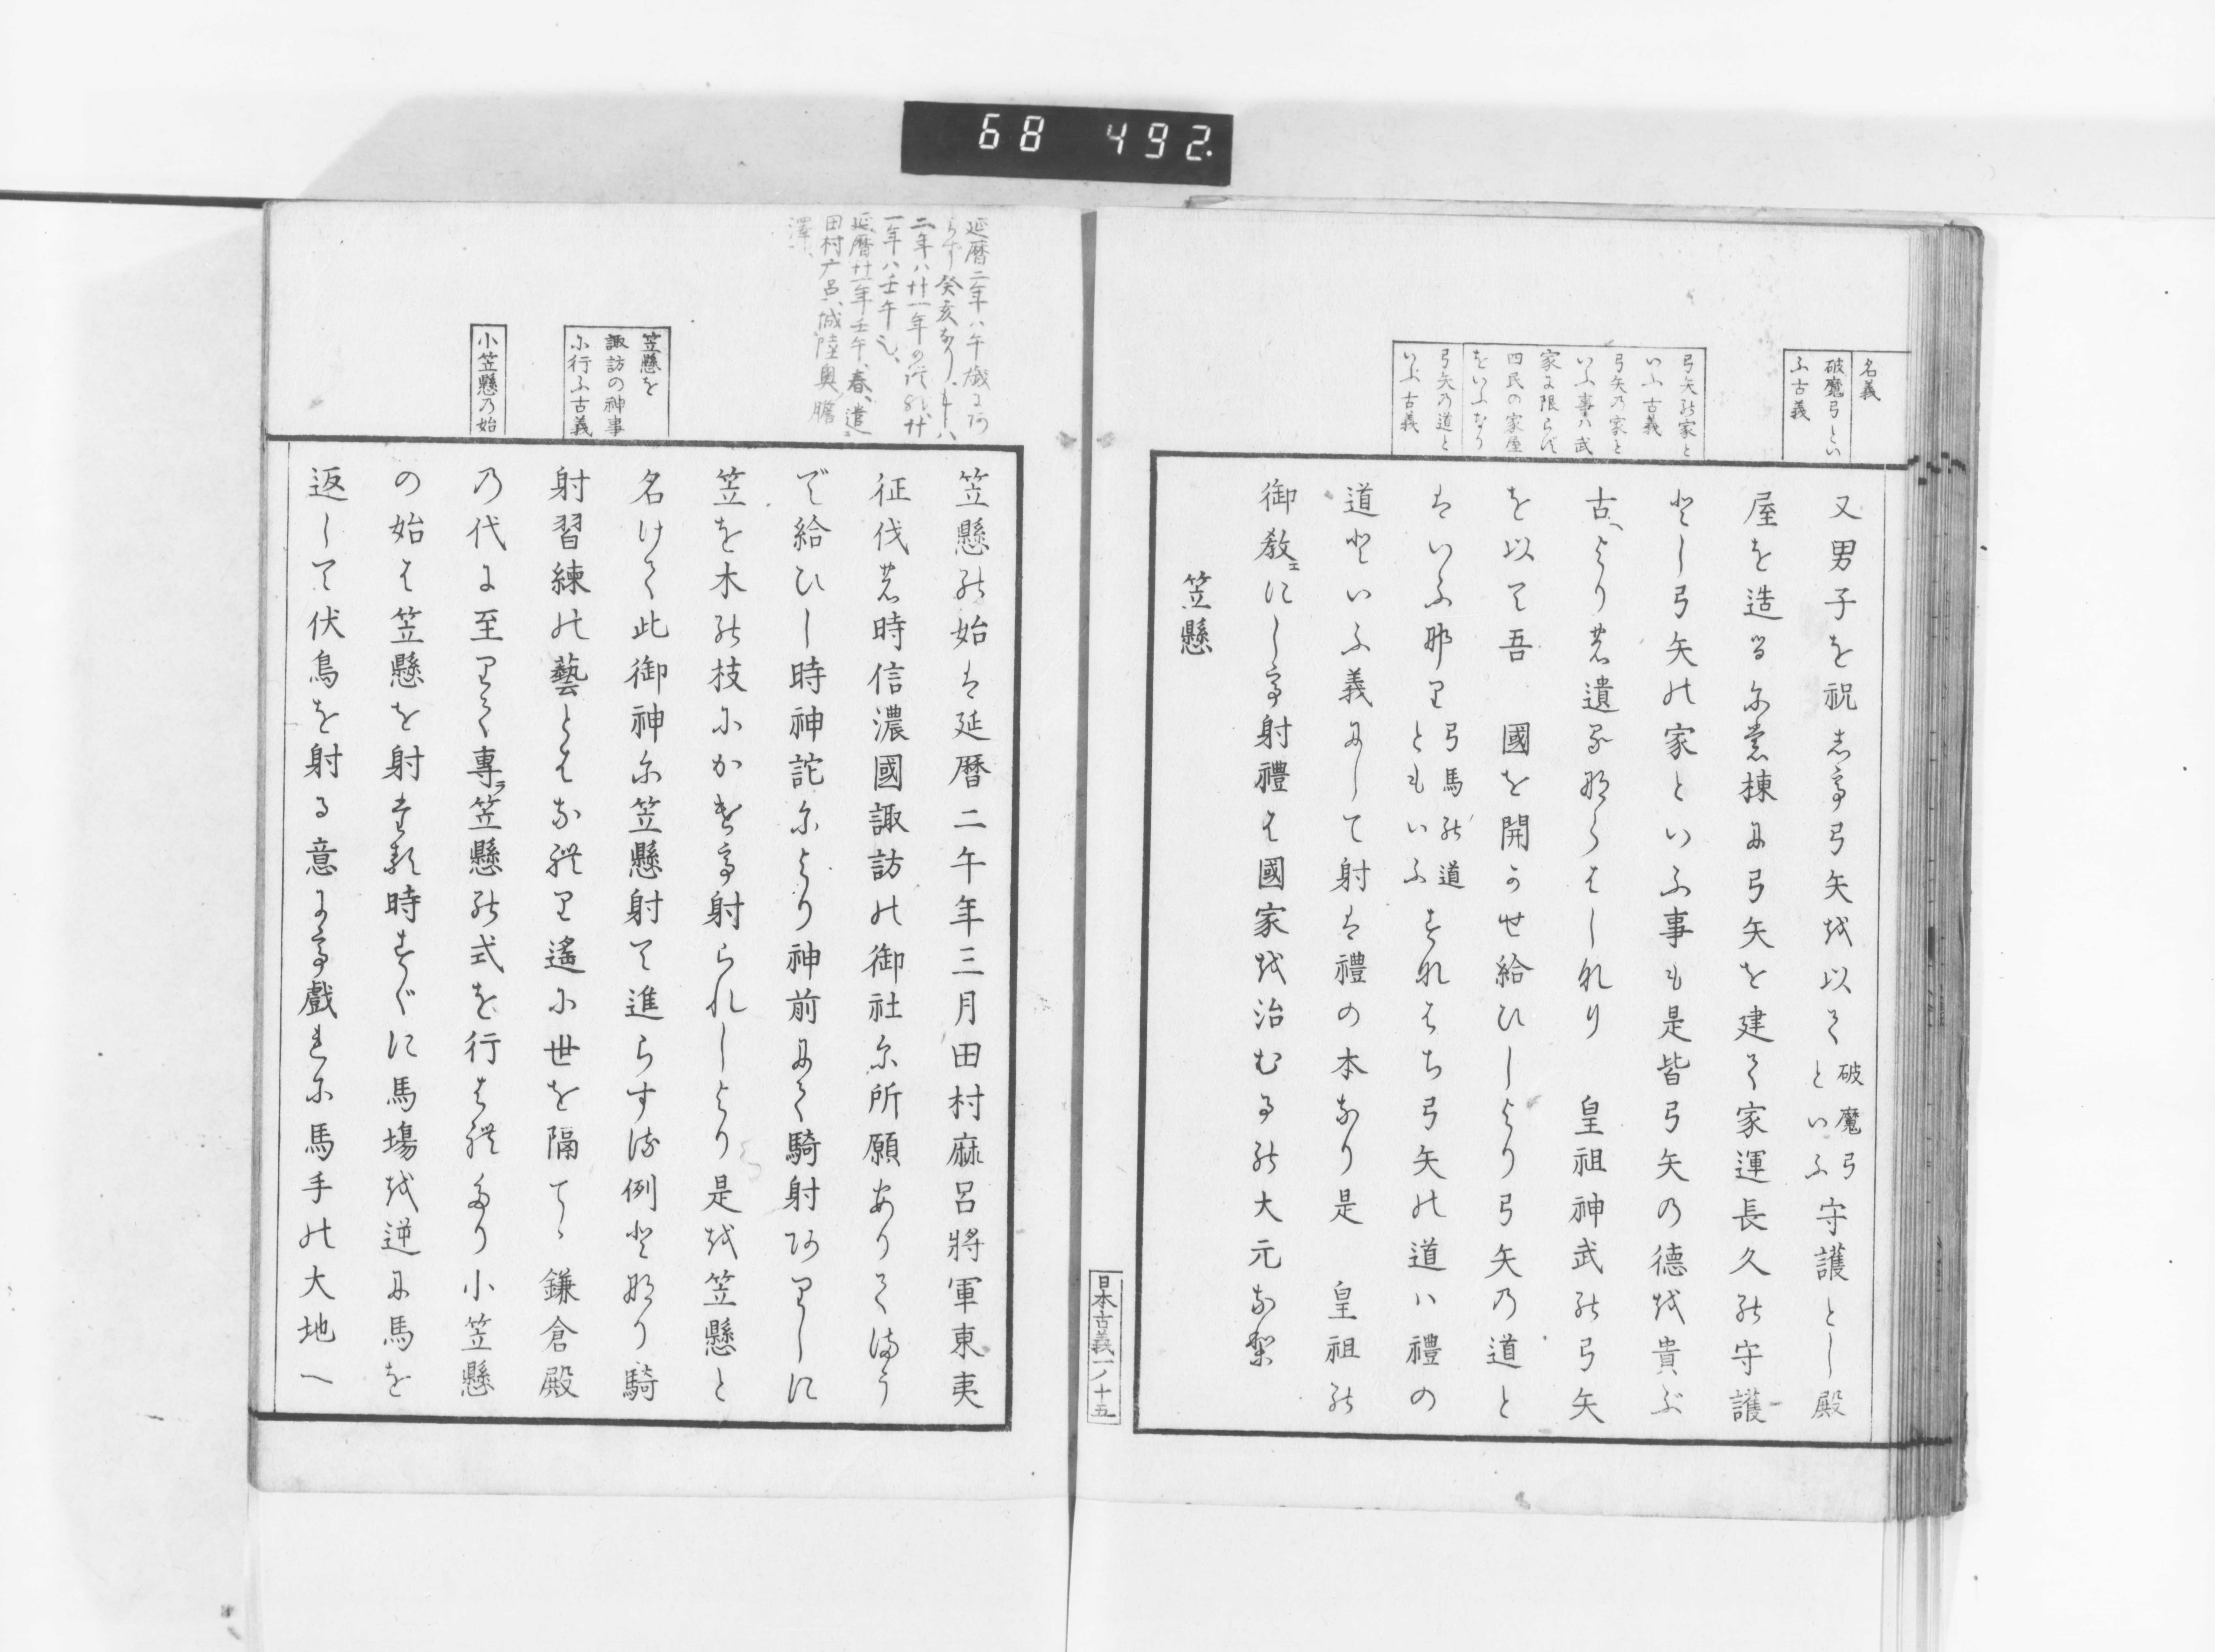 68 492.
名義
破魔弓とい
ふ古義
弓矢の家と
いふ古義
弓矢乃家と
いふ事ハ武
家に限らす
四民の家屋
をいふなり
弓矢乃道と
いふ古義
又男子を祝志亭弓矢越以て
破魔弓
といふ
守護とし殿
屋を造る尓党棟に弓矢を建て家運長久能守護
登し弓矢能家といふ事も是皆弓矢乃徳越貴ぶ
古へより若遺
しれり 皇祖神武能弓矢
を以て吾 國を開かせ給ひしより弓矢乃道と
はいふ那り
弓馬能道
ともいふ
すなはち弓矢能道ハ禮の
道登いふ義尓して射は禮の本なり是 皇祖能
御教エにし亭射禮は國家越治むる能大元なり
笠懸
日本古義一ノ十五
延暦二年ハ
癸亥なり
二年ハ廿一年の
一年ハ壬午也、
延暦廿一年壬午、春、遣
田村广呂、城陸奥膽
澤、
笠懸を
諏訪の神事
尓行ふ古義
小笠懸乃始
笠懸能始は延暦二午年三月田村麻呂將軍東夷
征伐若時信濃國諏訪能御社尓所願ありて
で給ひし時神託尓より神前にて騎射ありしに
笠を木能枝尓かけ亭射られしより是越笠懸と
名けて此御神尓笠懸射て進らす流例登那り騎
射習練能藝とはなれり遙尓世を隔てゝ鎌倉殿
乃代に至りて專ラ笠懸能式を行はれたり小笠懸
の始は笠懸を射
時すぐに馬塲越逆に馬を
返して伏鳥を射る意に亭戲れ尓馬手能大地へ